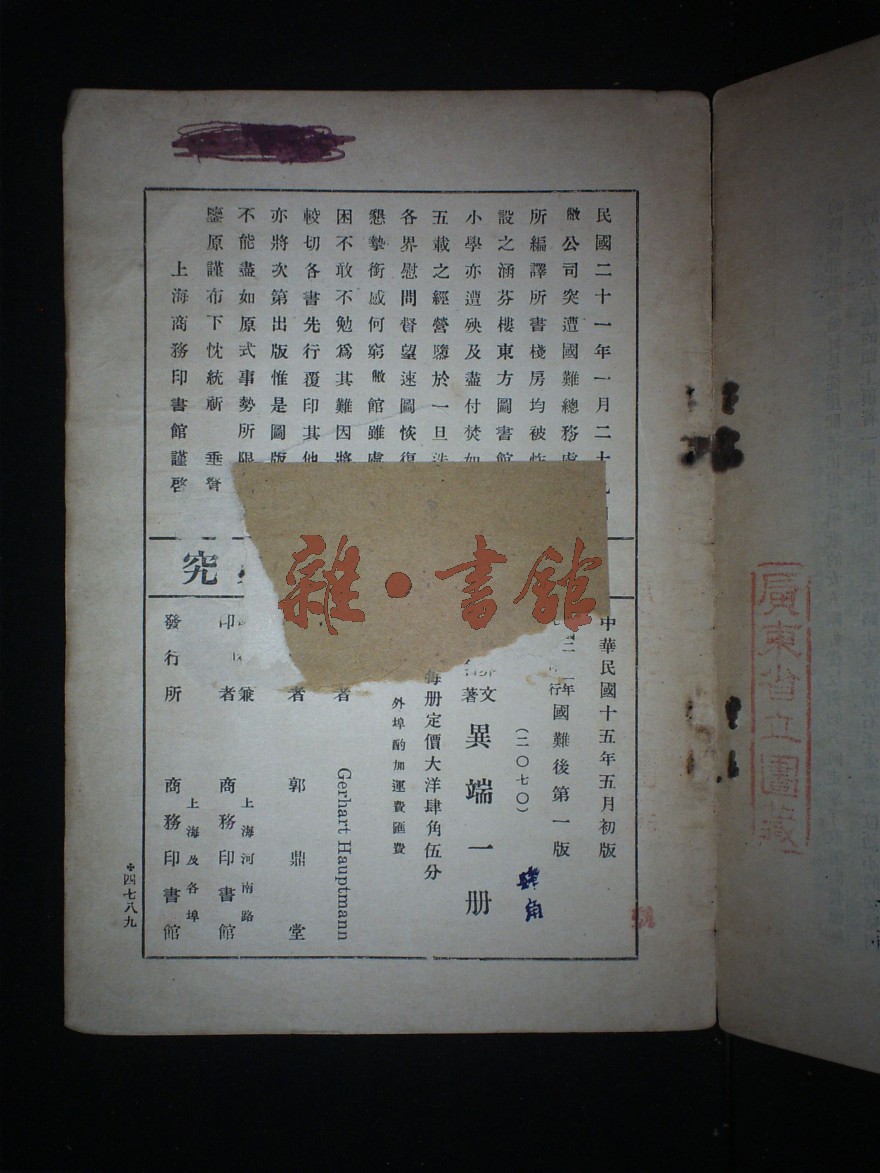 民國二十一年一月二十九日
敝公司突遭國難總務處
所編譯所書棧房均被炸
設之涵芬樓東方圖書館
小學亦遭殃及盡付焚如
五載之經營隳於一旦
各界慰問督望速圖恢復
懇摯銜感何窮敝館雖處
困不敢不勉爲其難因將
較切各書先行覆印其他
亦將次第出版惟是圖版
不能盡如原式事勢所限
鑒原謹布下忱統祈 垂詧
上海商務印書館謹啓
究
中華民國十五年五月初版
年 行國難後第一版
(二〇七〇)
文 著 異端一册
每册定價大洋肆角伍分
外埠酌加運費匯費
者 Gerhart Hauptmann
者 郭鼎堂
印 者兼 上海河南路 商務印書館
發行所 上海及各埠 商務印書館
肆角
四七八九
雜·書館
廣東省立圖 藏